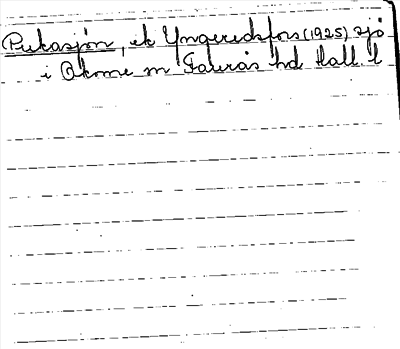 Putasjön, ek Yngeredsfors (1925) sjö
i Okome sn Faurås hd Hall. l